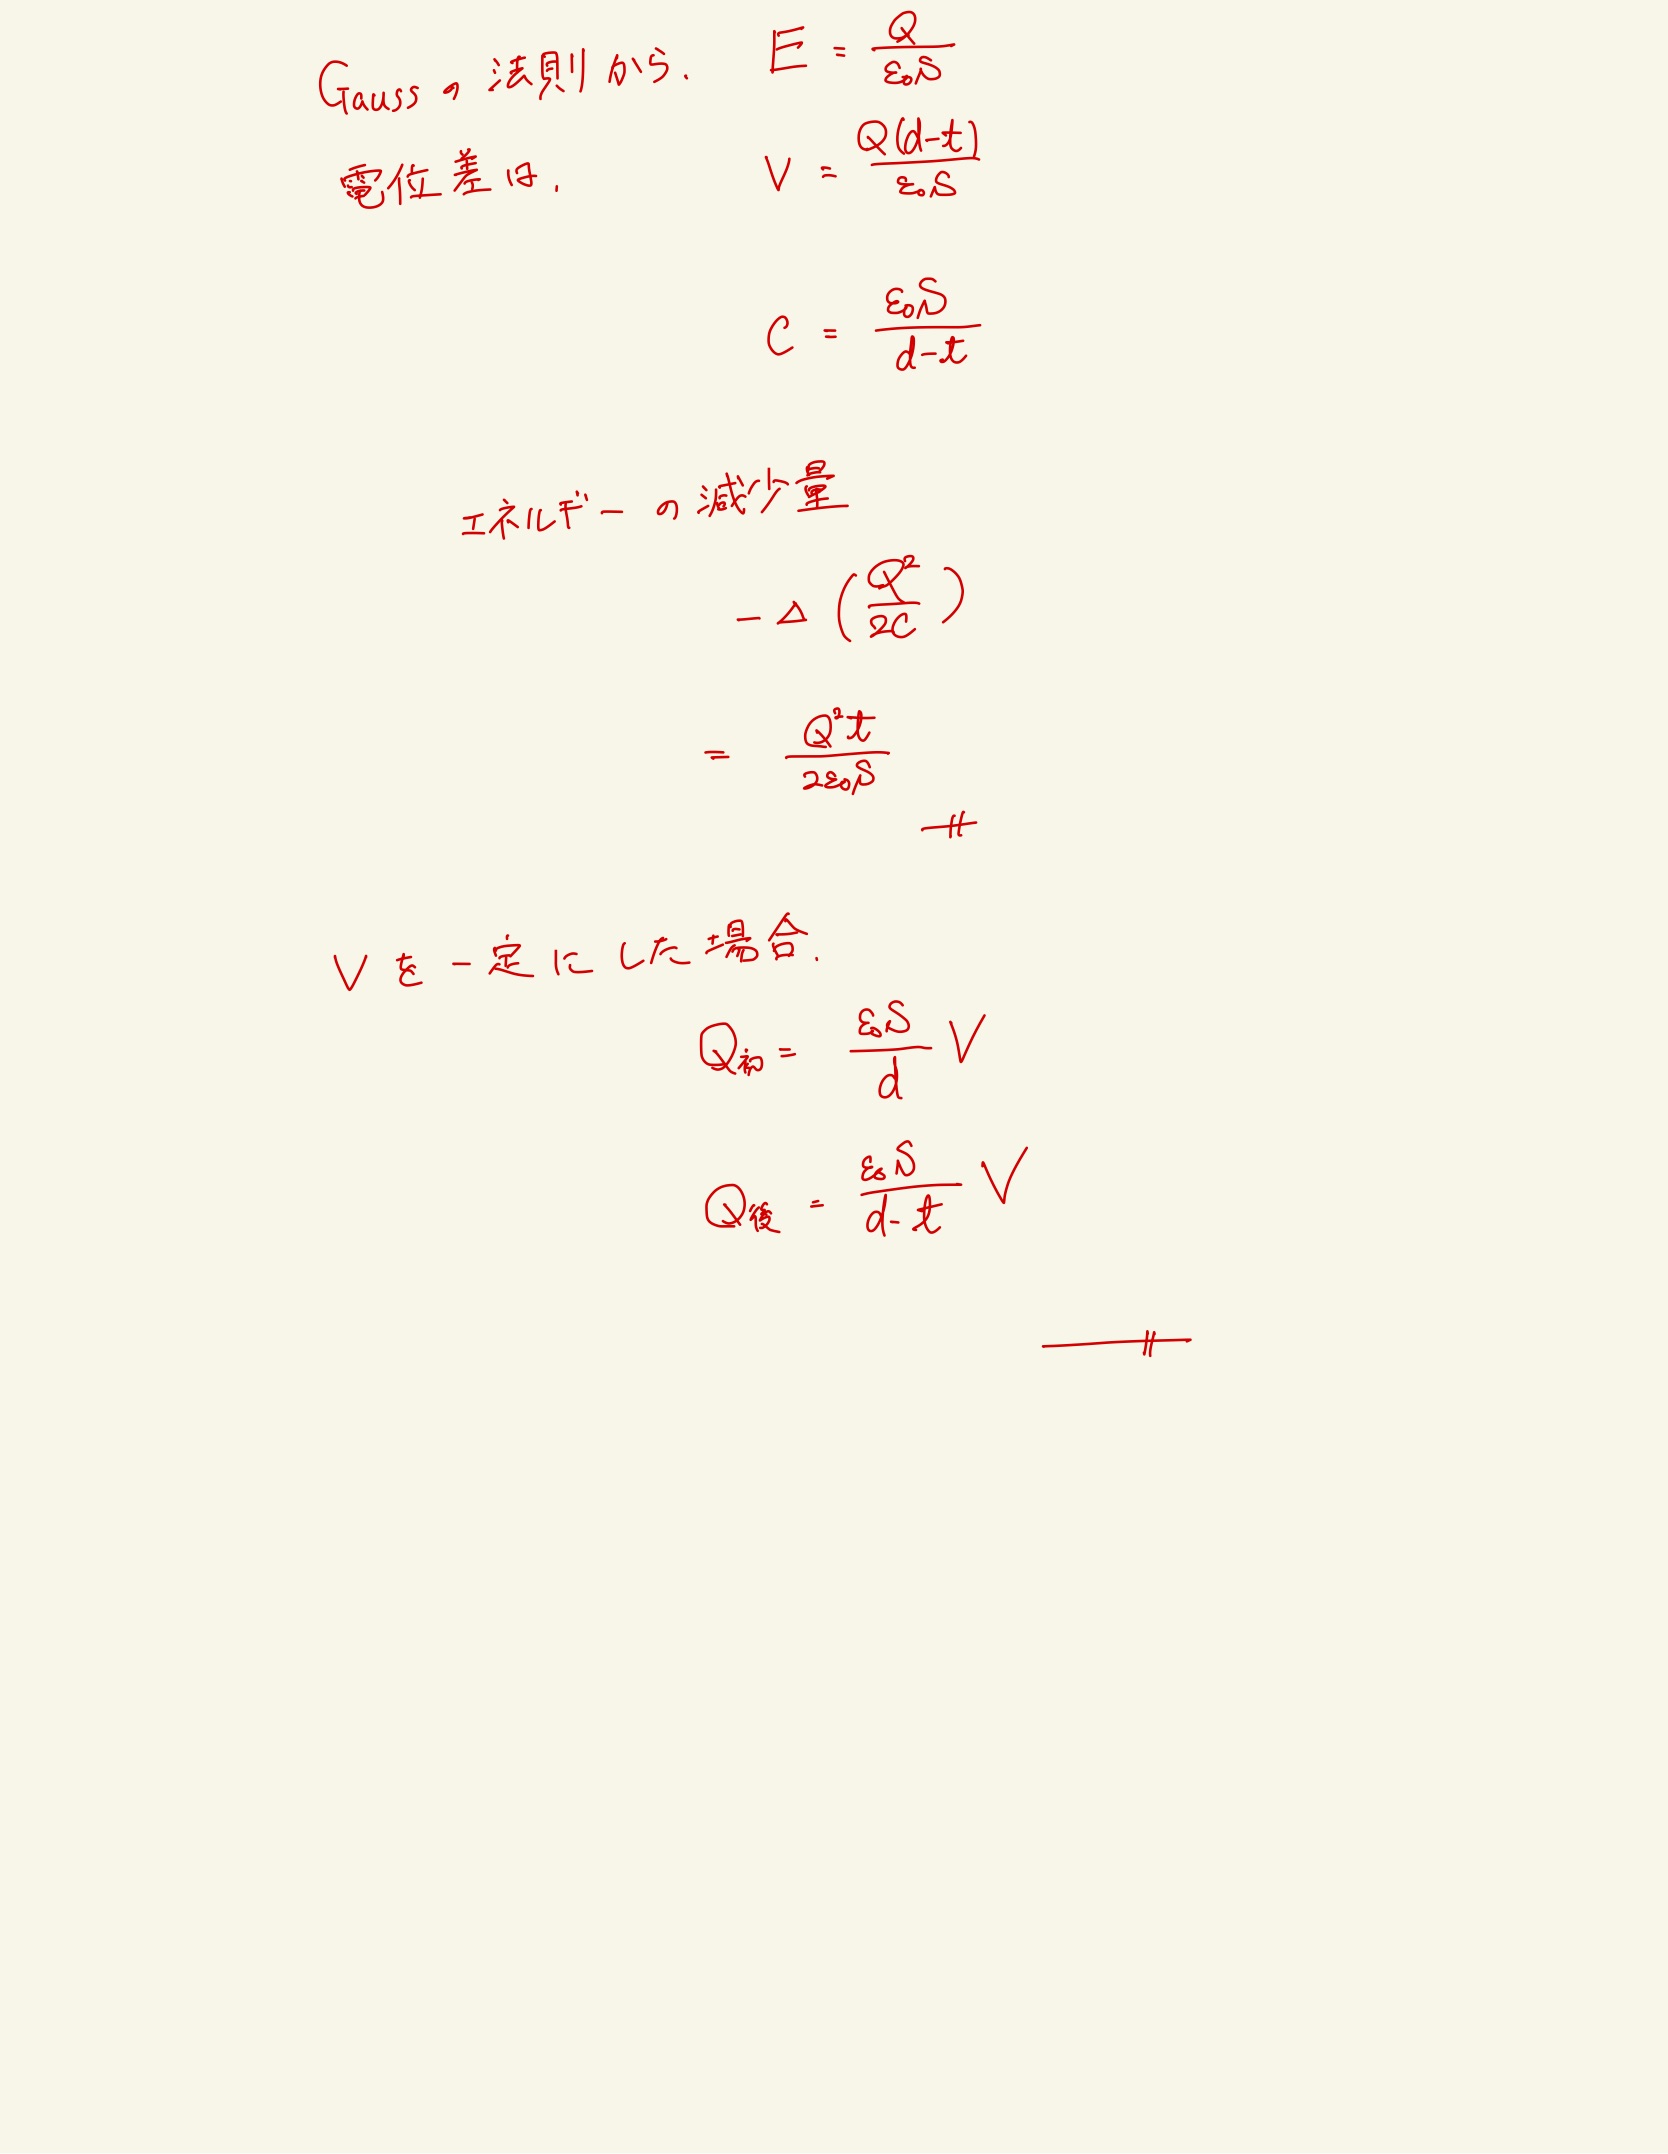 Gaussの法則から. E = Q/ε₀S
電位差は. V = Q(d-t)/ε₀S
C = ε₀S/d-t
エネルギーの減少量
-Δ(Q²/2C)
= Q²t/2ε₀S
Vを一定にした場合.
Q初 = ε₀S/d V
Q後 = ε₀S/d-t V